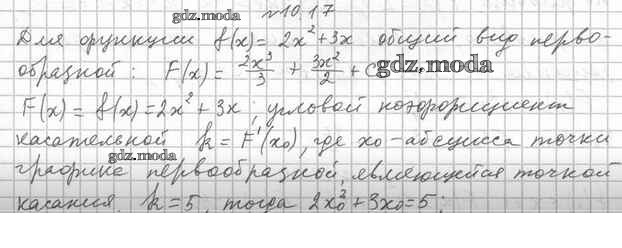 №10.17
gdz.moda
Для функции f(x) = 2x² + 3x общий вид перво-
образной: F(x) = 2x³/3 + 3x²/2 + C
gdz.moda
F(x) = f(x) = 2x² + 3x; угловой коэффициент
gdz.moda
касательной k = F'(x₀), где x₀ - абсцисса точки
gdz.moda
графика первообразной, являющейся точкой
касания. k = 5, тогда 2x₀² + 3x₀ = 5;